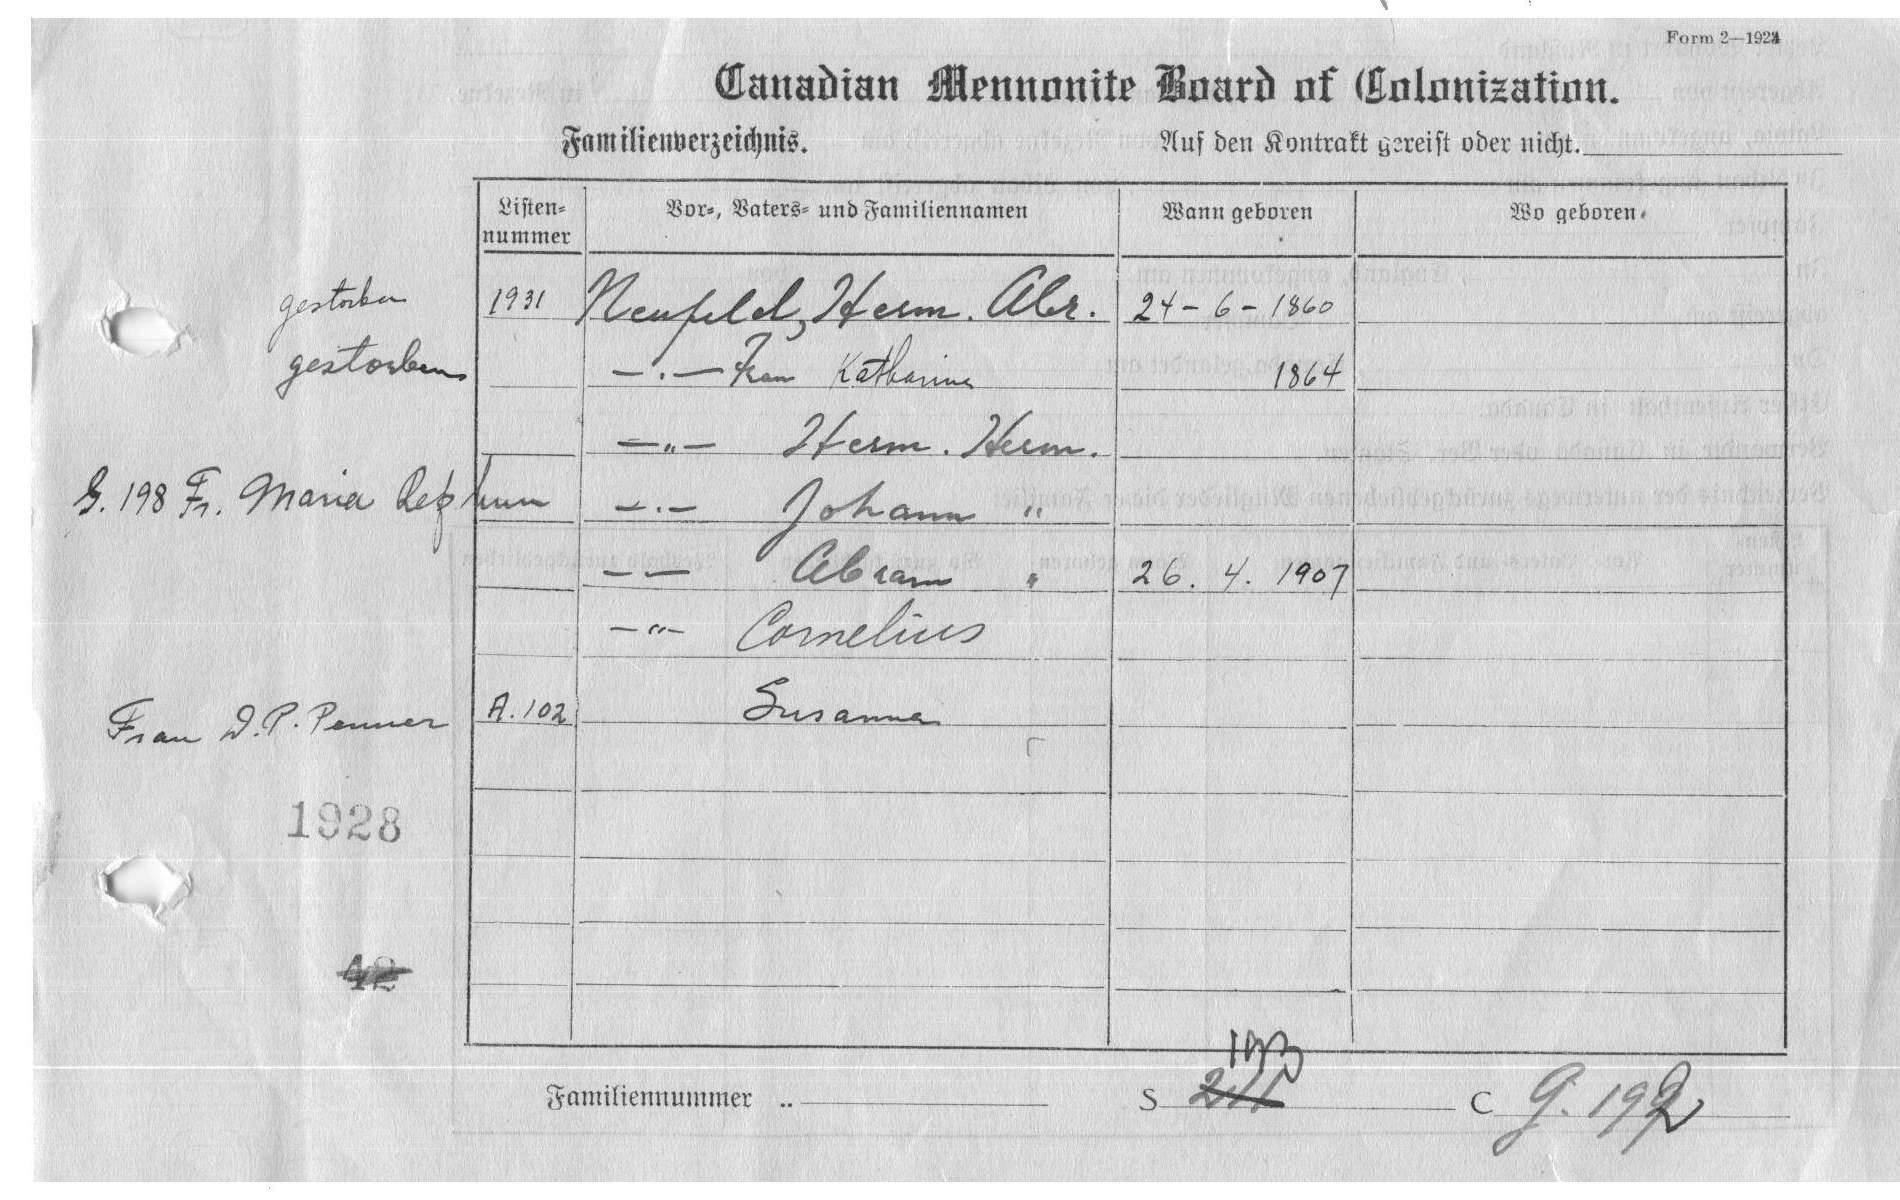 Form 2—1924
Canadian Mennonite Board of Colonization.
Familienverzeichnis. Auf den Kontrakt gereist oder nicht.
Listen-nummer Vor-, Vaters- und Familiennamen Wann geboren Wo geboren.
gestorben 1931 Neufeld, Herm. Abr. 24 - 6 - 1860
gestorben —·— Frau Katharina 1864
—„— Herm. Herm.
G. 198 Fr. Maria —·— Johann "
—— Abram " 26. 4. 1907
—"— Cornelius
Frau D. P. Penner A. 102 Susanna
1928
42
193
Familiennummer .. S 211 C G. 192